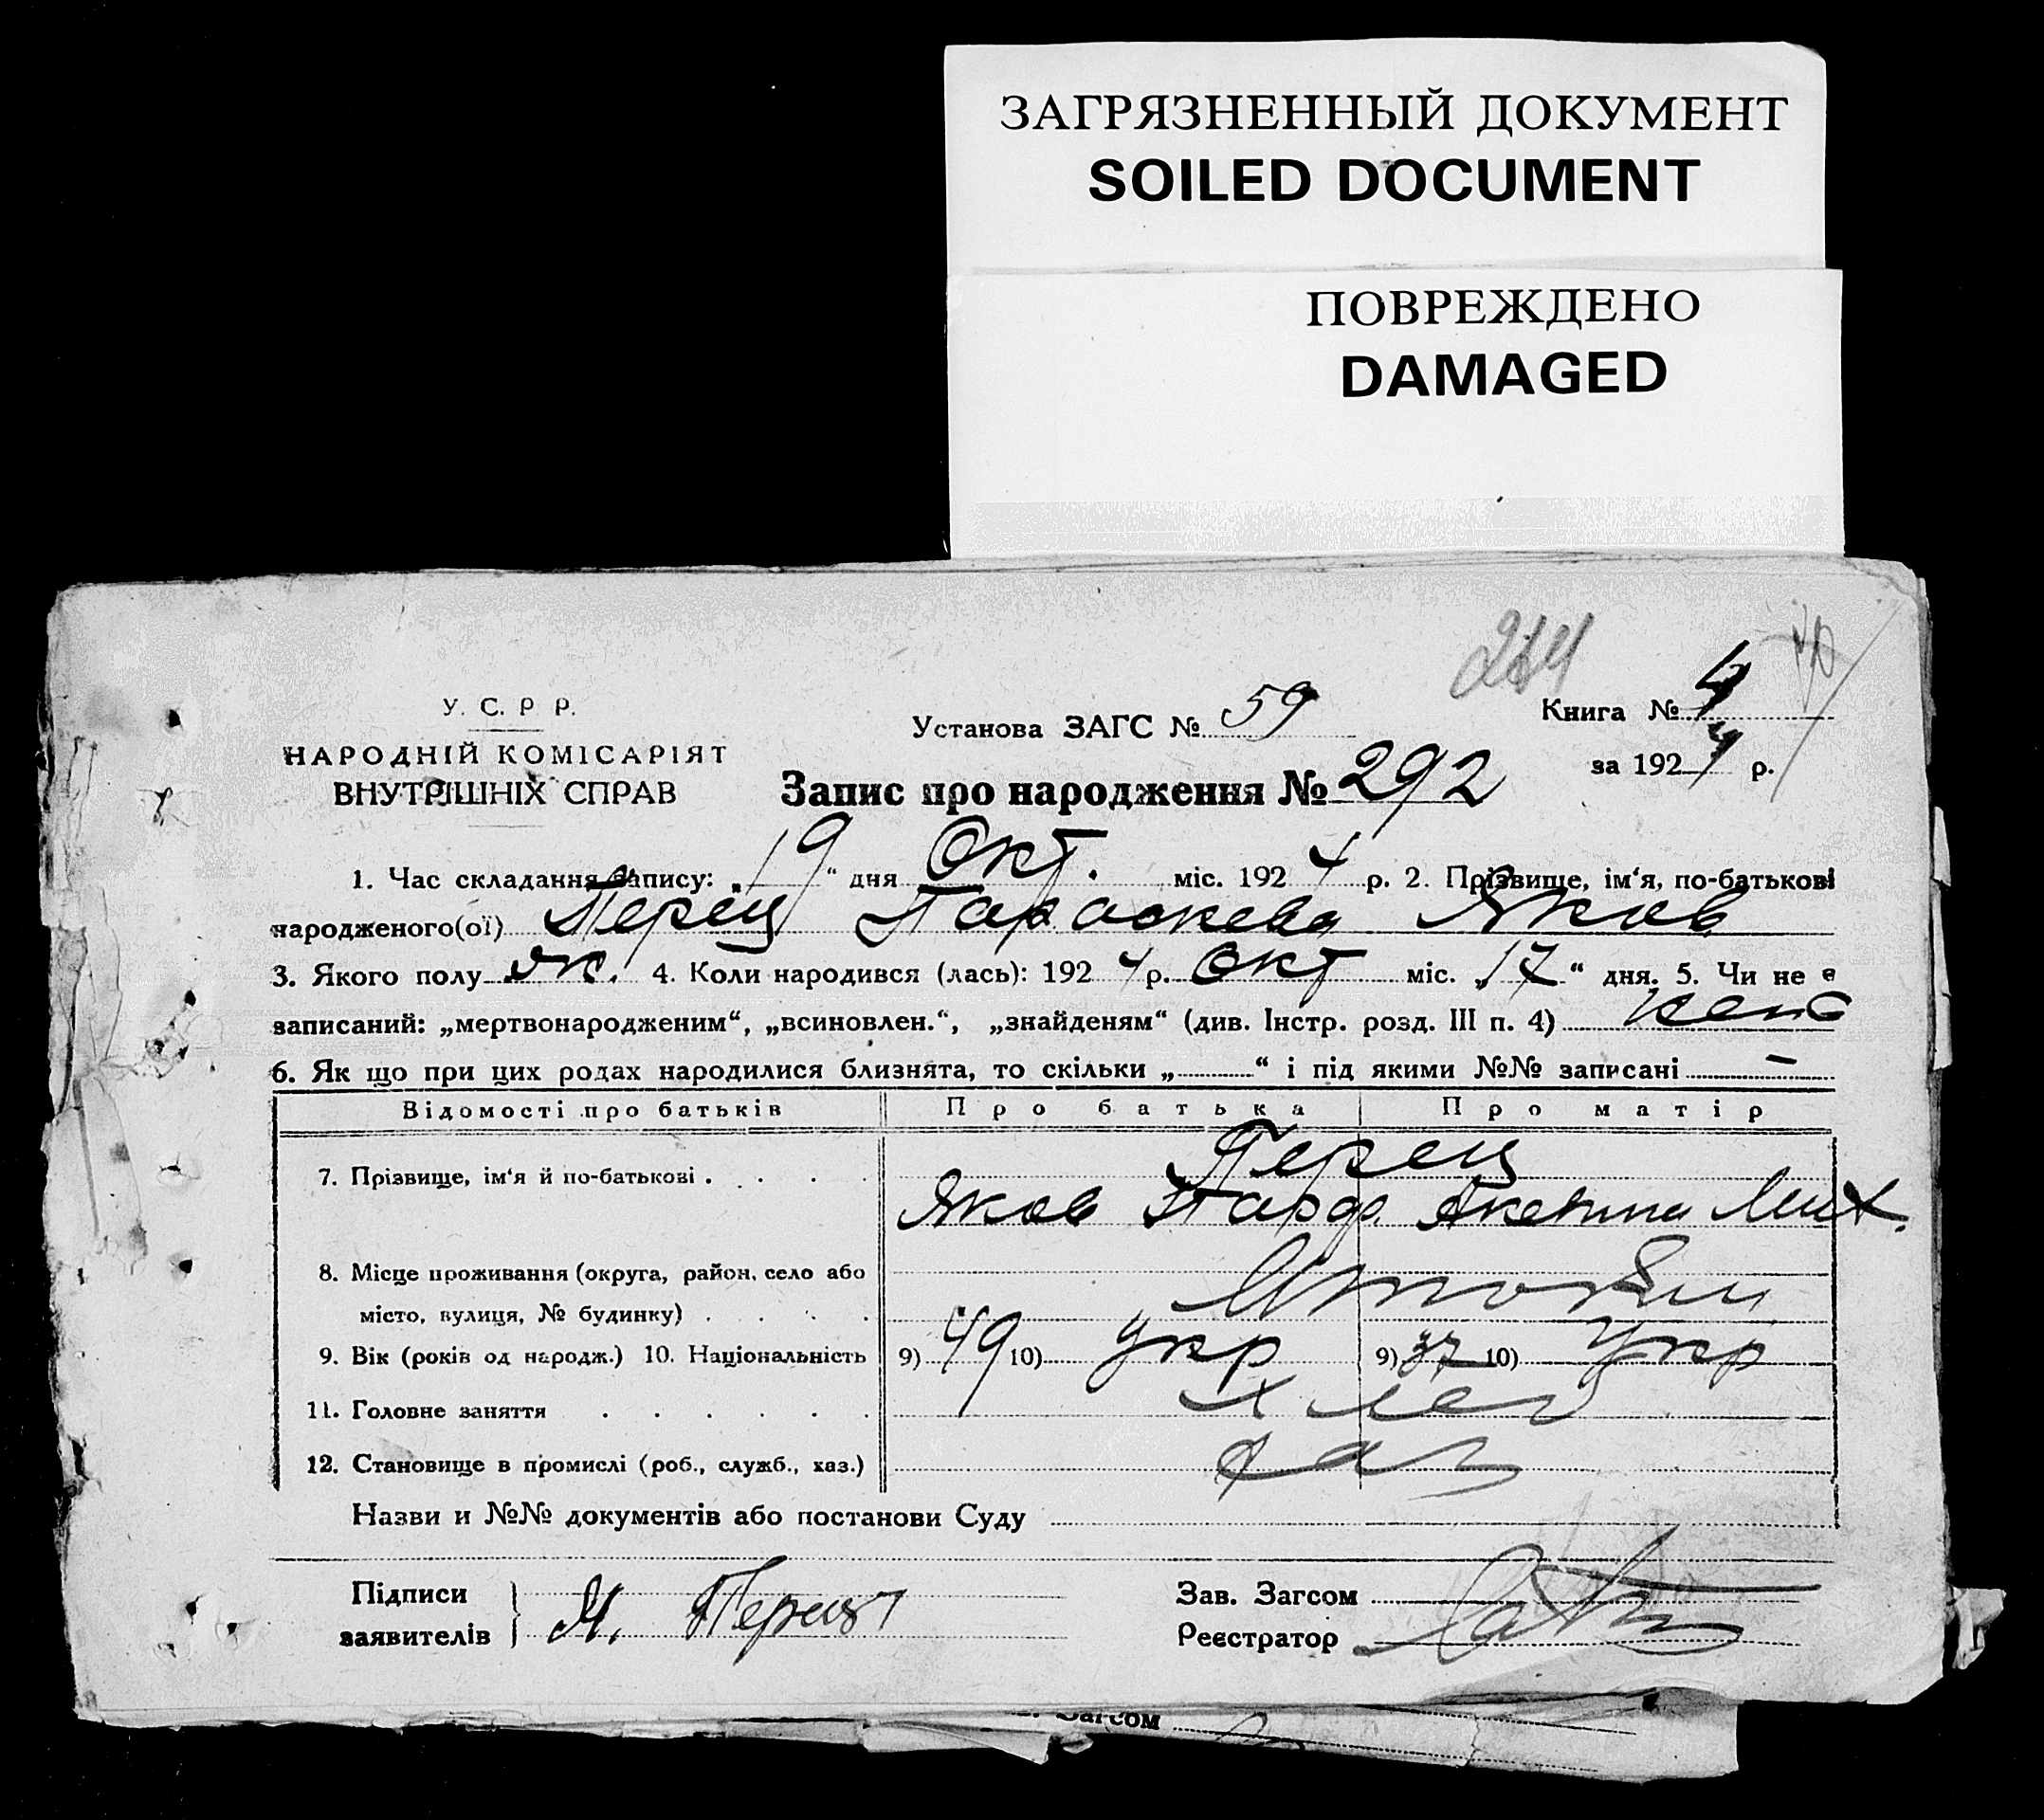 ЗАГРЯЗНЕННЫЙ ДОКУМЕНТ
SOILED DOCUMENT
ПОВРЕЖДЕНО
DAMAGED
У. С. Р Р.
НАРОДНІЙ КОМІСАРІЯТ
ВНУТРІШНІХ СПРАВ
Установа ЗАГС № 59
Книга № 4
за 1924 р.
Запис про народження № 292
1. Час складання запису: „19“ дня Окт. міс. 1924 р. 2. Прізвище, ім'я, по-батькові
народженого(ої) Перец Параскева Яков
3. Якого полу ж. 4. Коли народився (лась): 1924 р. Окт міс. „17“ дня. 5. Чи не є
записаний: „мертвонародженим“, „всиновлен.“, „знайденям“ (див. Інстр. розд. III п. 4)
6. Як що при цих родах народилися близнята, то скільки „ “ і під якими №№ записані —
Відомості про батьків Про батька Про матір
7. Прізвище, ім'я й по-батькові . . . . Перец
Яков Парф. Аксинья Мих.
8. Місце проживання (округа, район, село або
місто, вулиця, № будинку) . . . .
9. Вік (років од народж.) 10. Національність 9) 49 10) укр 9) 37 10) укр
11. Головне заняття . . . . . . хлеб
12. Становище в промислі (роб., служб., хаз.) хаз
Назви и №№ документів або постанови Суду
Підписи
заявителів Я. Перец
Зав. Загсом
Реєстратор
Загсом